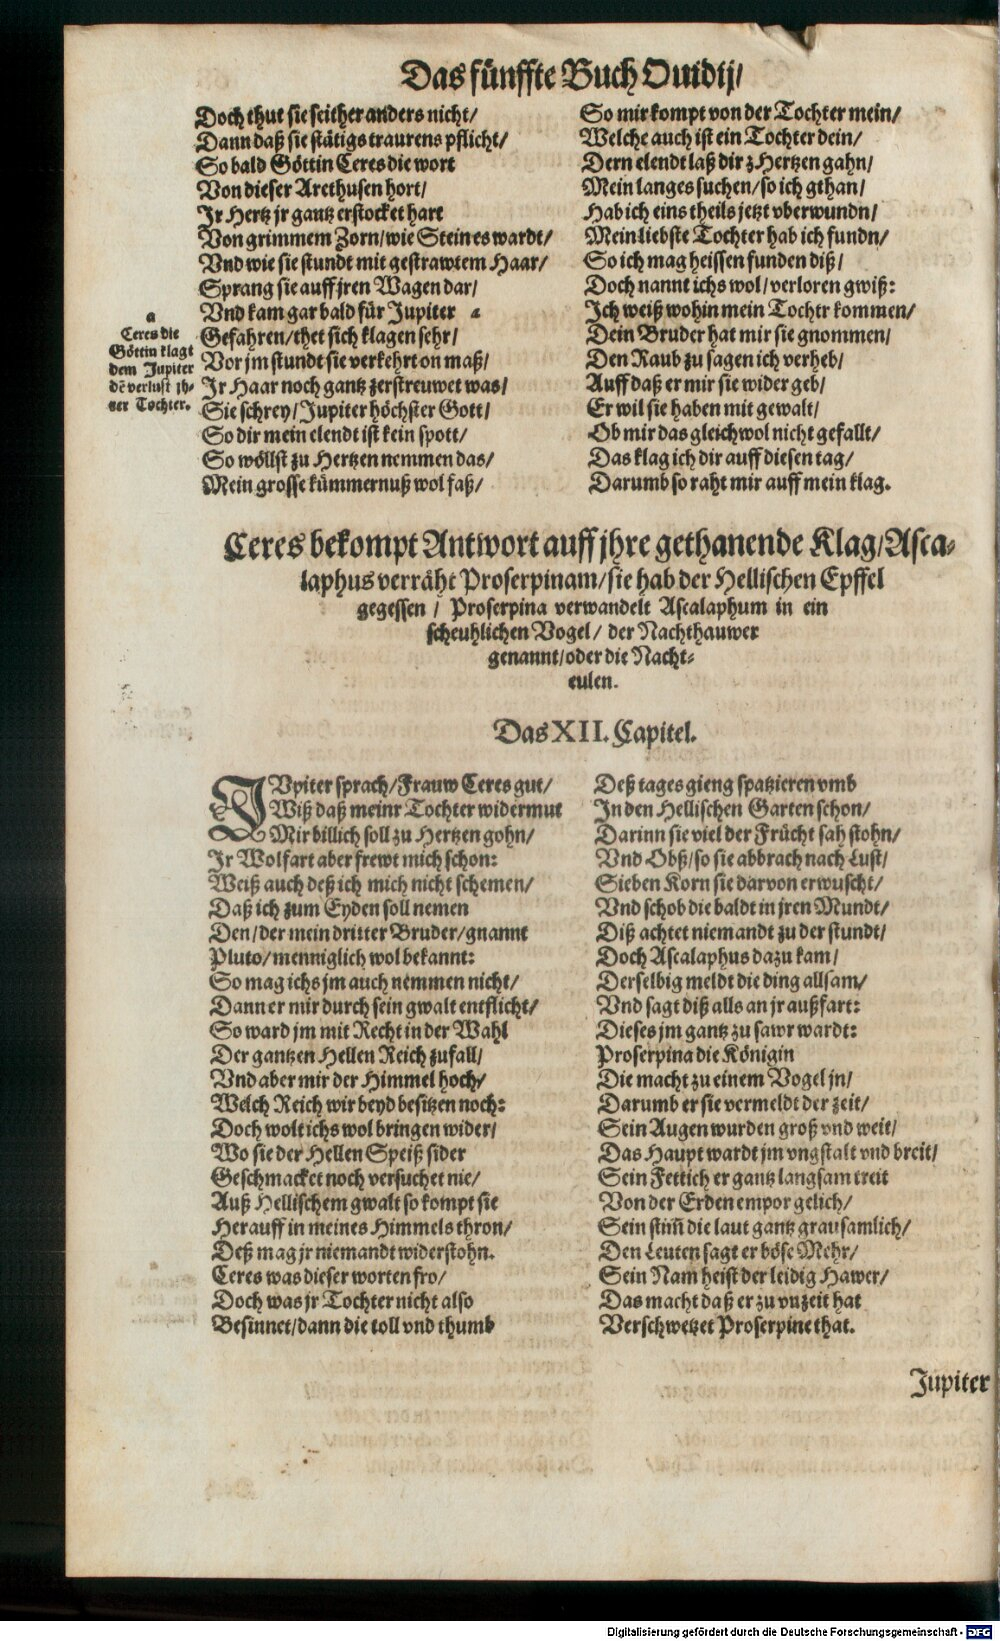 Das fünffte Buch Ouidij/
Doch thut sie seither anders nicht/
Dann daß sie stätigs traurens pflicht/
So bald Göttin Ceres die wort
Von dieser Arethusen hort/
Jr Hertz jr gantz erstocket hart
Von grimmem Zorn/wie Stein es wardt/
Vnd wie sie stundt mit gestrawtem Haar/
Sprang sie auff jren Wagen dar/
Vnd kam gar bald für Jupiter a
Gefahren/thet sich klagen sehr/
Vor jm stundt sie verkehrt on maß/
Jr Haar noch gantz zerstreuwet was/
Sie schrey/Jupiter höchster Gott/
So dir mein elendt ist kein spott/
So wöllst zu Hertzen nemmen das/
Mein grosse kümmernuß wol faß/
a
Ceres die
Göttin klagt
dem Jupiter
dē verlust jh-
rer Tochter.
So mir kompt von der Tochter mein/
Welche auch ist ein Tochter dein/
Dern elendt laß dir z Hertzen gahn/
Mein langes suchen/so ich gthan/
Hab ich eins theils jetzt vberwundn/
Mein liebste Tochter hab ich fundn/
So ich mag heissen funden diß/
Doch nannt ichs wol/verloren gwiß:
Jch weiß wohin mein Tochtr kommen/
Dein Bruder hat mir sie gnommen/
Den Raub zu sagen ich verheb/
Auff daß er mir sie wider geb/
Er wil sie haben mit gewalt/
Ob mir das gleichwol nicht gefallt/
Das klag ich dir auff diesen tag/
Darumb so raht mir auff mein klag.
Ceres bekompt Antwort auff jhre gethanende Klag/Asca-
laphus verräht Proserpinam/sie hab der Hellischen Epffel
gegessen/ Proserpina verwandelt Ascalaphum in ein
scheuhlichen Vogel/ der Nachthauwer
genannt/oder die Nacht-
eulen.
Das XII. Capitel.
JVpiter sprach/Frauw Ceres gut/
Wiß daß meinr Tochter widermut
Mir billich soll zu Hertzen gohn/
Jr Wolfart aber frewt mich schon:
Weiß auch deß ich mich nicht schemen/
Daß ich zum Eyden soll nemen
Den/der mein dritter Bruder/gnannt
Pluto/menniglich wol bekannt:
So mag ichs jm auch nemmen nicht/
Dann er mir durch sein gwalt entflicht/
So ward jm mit Recht in der Wahl
Der gantzen Hellen Reich zufall/
Vnd aber mir der Himmel hoch/
Welch Reich wir beyd besitzen noch:
Doch wolt ichs wol bringen wider/
Wo sie der Hellen Speiß sider
Geschmacket noch versuchet nie/
Auß Hellischem gwalt so kompt sie
Herauff in meines Himmels thron/
Deß mag jr niemandt widerstohn.
Ceres was dieser worten fro/
Doch was jr Tochter nicht also
Besinnet/dann die toll vnd thumb
Deß tages gieng spatzieren vmb
In den Hellischen Garten schon/
Darinn sie viel der Frücht sah stohn/
Vnd Obß/so sie abbrach nach Lust/
Sieben Korn sie darvon erwuscht/
Vnd schob die baldt in jren Mundt/
Diß achtet niemandt zu der stundt/
Doch Ascalaphus dazu kam/
Derselbig meldt die ding allsam/
Vnd sagt diß alls an jr außfart:
Dieses jm gantz zu sawr wardt:
Proserpina die Königin
Die macht zu einem Vogel jn/
Darumb er sie vermeldt der zeit/
Sein Augen wurden groß vnd weit/
Das Haupt wardt jm vngstalt vnd breit/
Sein Fettich er gantz langsam treit
Von der Erden empor gelich/
Sein stiñ die laut gantz grausamlich/
Den Leuten sagt er böse Mehr/
Sein Nam heist der leidig Hawer/
Das macht daß er zu vnzeit hat
Verschwetzet Proserpine that.
Jupiter
Digitalisierung gefördert durch die Deutsche Forschungsgemeinschaft - DFG